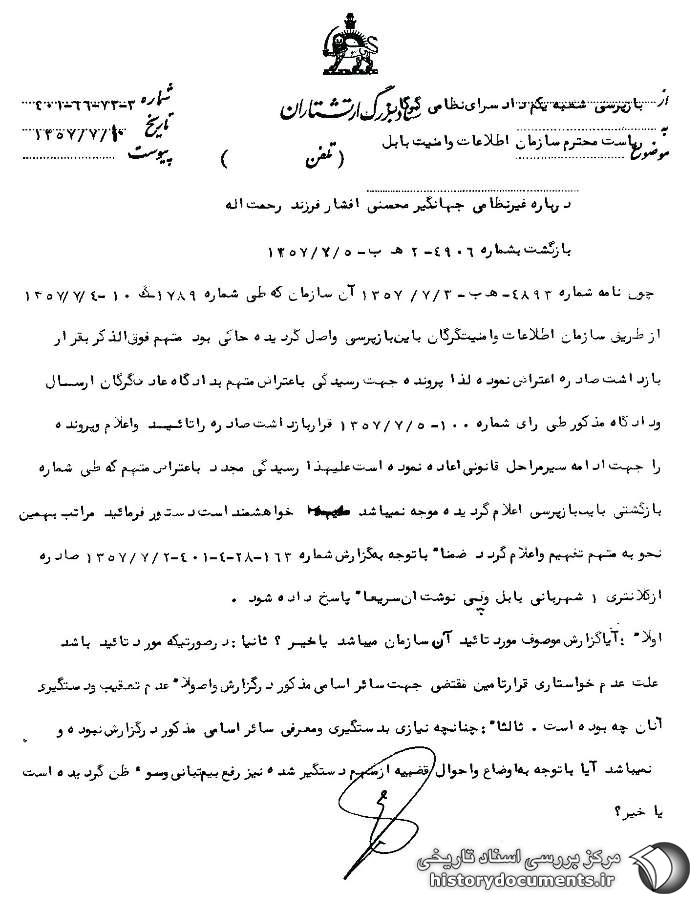 ستاد بزرگ ارتشتاران
از بازپرسی شعبه یکم دادسرای نظامی گرگان
شماره ۳-۷۳-۶۶-۴۰۱
به ریاست محترم سازمان اطلاعات وامنیت بابل
تاریخ ۱۳۵۷/۷/۱۰
موضوع
(تلفن )
پیوست
درباره غیرنظامی جهانگیر محسنی افشار فرزند رحمت اله
بازگشت بشماره ۴۹۰۶-۲ هـ ب-۱۳۵۷/۷/۵
چون نامه شماره ۴۸۹۳- هـ ب- ۱۳۵۷/۷/۳ آن سازمان که طی شماره ۱۷۸۹-ک ۱۰ -۱۳۵۷/۷/۴
از طریق سازمان اطلاعات وامنیت گرگان باین بازپرسی واصل گردیده حاکی بود متهم فوق الذکر بقرار
بازداشت صادره اعتراض نموده لذا پرونده جهت رسیدگی باعتراض متهم بدادگاه عادی گرگان ارسال
ودادگاه مذکور طی رای شماره ۱۰۰-۱۳۵۷/۷/۵ قرار بازداشت صادره را تائید واعلام وپرونده
را جهت ادامه سیر مراحل قانونی اعاده نموده است علیهذا رسیدگی مجدد باعتراض متهم که طی شماره
بازگشتی باین بازپرسی اعلام گردیده موجه نمیباشد خواهشمند است دستور فرمائید مراتب بهمین
نحو به متهم تفهیم واعلام گردد ضمنا" باتوجه به گزارش شماره ۱۶۳-۲۸-۴-۴۰۱-۱۳۵۷/۷/۲ صادره
از کلانتری ۱ شهربانی بابل وپی نوشت آن سریعا" پاسخ داده شود .
اولا" : آیا گزارش موصوف مورد تائید آن سازمان میباشد یا خیر ؟ ثانیا : درصورتیکه مورد تائید باشد
علت عدم خواستاری قرار تامین مقتضی جهت سائر اسامی مذکور درگزارش واصولا" عدم تعقیب ودستگیری
آنان چه بوده است . ثالثا": چنانچه نیازی بدستگیری ومعرفی سائر اسامی مذکور درگزارش نبوده و
نمیباشد آیا باتوجه به اوضاع واحوال قضیه از متهم دستگیر شده نیز رفع بیم تبانی وسوء ظن گردیده است
یا خیر ؟
مرکز بررسی اسناد تاریخی
historydocuments.ir